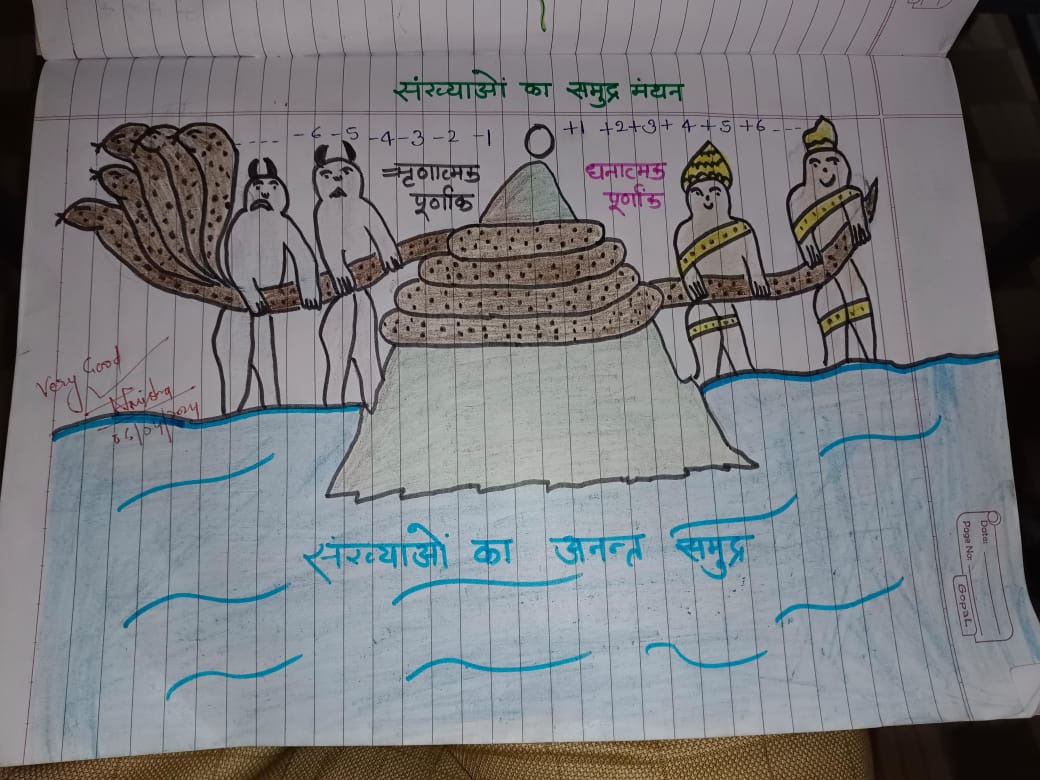 संख्याओं का समुद्र मंथन
---- -6 -5 -4 -3 -2 -1 0 +1 +2 +3 + 4 +5 +6 ----
ऋणात्मक
पूर्णांक
धनात्मक
पूर्णांक
Very Good
संख्याओं का अनन्त समुद्र
Date:
Page No:
GopaL